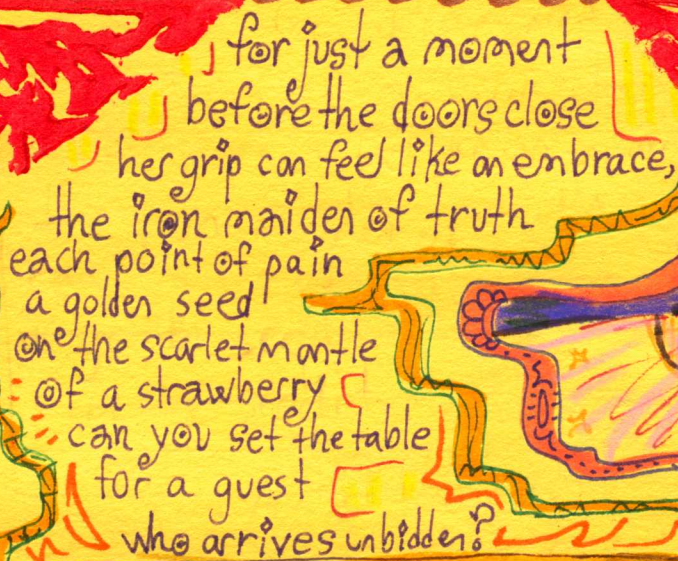 for just a moment
before the doors close
her grip can feel like an embrace,
the iron maiden of truth
each point of pain
a golden seed
on the scarlet mantle
of a strawberry
can you set the table
for a guest
who arrives unbidden?